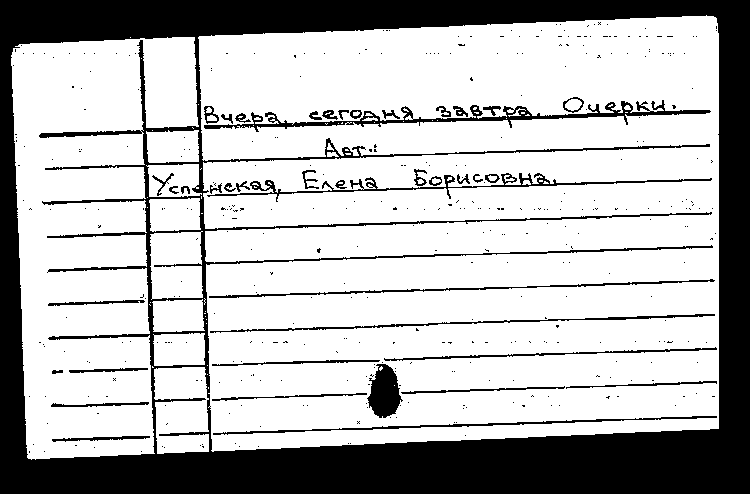 Вчера, сегодня, завтра. Очерки.
Авт.:
Успенская, Елена Борисовна.